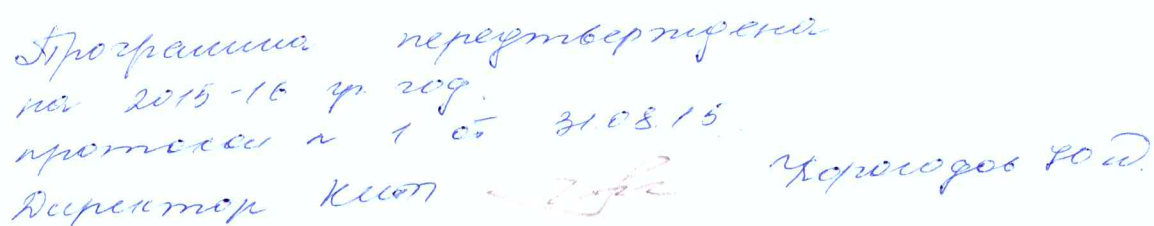 Программа переутверждена
на 2015-16 уч. год.
протокол № 1 от 31.08.15
Директор Корогодов